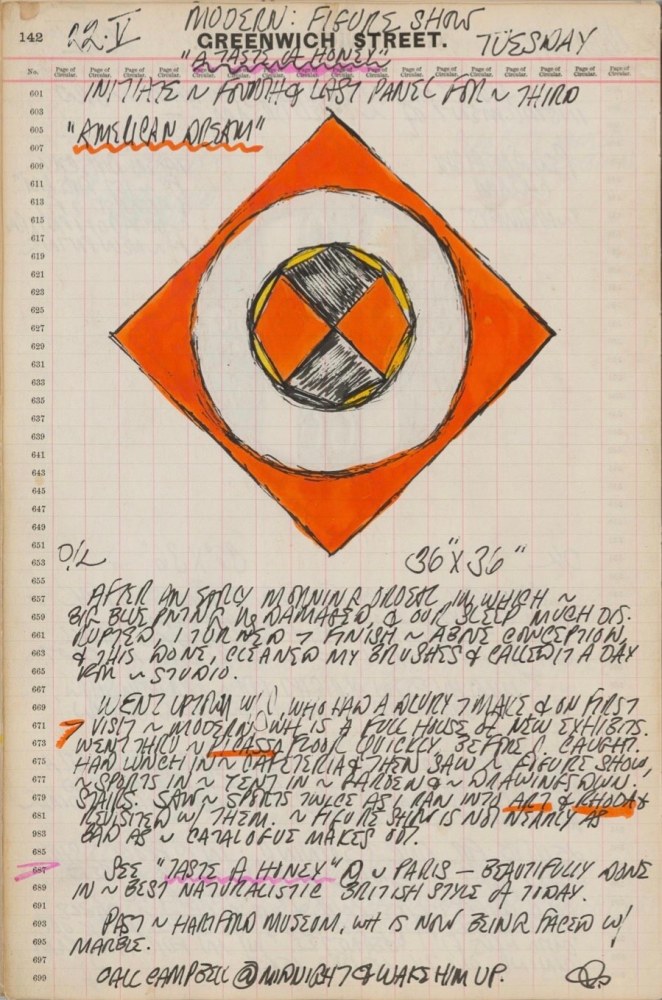 142
22·V
MODERN: FIGURE SHOW
GREENWICH STREET.
TUESDAY
"A TASTE A HONEY"
No. Page of Circular. Page of Circular. Page of Circular. Page of Circular. Page of Circular. Page of Circular. Page of Circular. Page of Circular. Page of Circular. Page of Circular. Page of Circular. Page of Circular. Page of Circular. Page of Circular. Page of Circular. Page of Circular.
601
INITIATE ~ FOURTH & LAST PANEL FOR ~ THIRD
603
605
"AMERICAN DREAM"
607
609
611
613
615
617
619
621
623
625
627
629
631
633
635
637
639
641
643
645
647
649
651
653
OIL
36" X 36"
655
657
AFTER AN EARLY MORNING ORDEAL IN WHICH ~
659
BIG BLUE PNTNG WS DAMAGED, & OUR SLEEP MUCH DIS-
661
RUPTED, I TURNED TO FINISH ~ ABOVE CONCEPTION,
663
& THIS DONE, CLEANED MY BRUSHES & CALLED IT A DAY
665
~ STUDIO.
667
669
WENT UPTOWN W/ WHO HAD A DLVRY TO MAKE & ON FIRST
671
VISIT ~ MODERN WH IS A FULL HOUSE OF NEW EXHIBITS.
673
WENT THRU ~ FLOOR QUICKLY BEFORE CAUGHT.
675
HAD LUNCH IN ~ CAFETERIA & THEN SAW ~ FIGURE SHOW,
677
~ SPORTS IN ~ TENT IN ~ GARDEN & ~ DRAWINGS DOWN-
679
STAIRS. SAW ~ SPORTS TWICE AS I RAN INTO ART & RHODA &
681
REVISITED W/ THEM. ~ FIGURE SHOW IS NOT NEARLY AS
983
BAD AS ~ CATALOGUE MAKES OUT.
685
687
SEE "TASTE A HONEY" @ ~ PARIS — BEAUTIFULLY DONE
689
IN ~ BEST NATURALISTIC BRITISH STYLE OF TODAY.
691
693
PAST ~ HARTFORD MUSEUM, WH IS NOW BEING FACED W/
695
MARBLE.
697
699
CALL CAMPBELL @ MIDNIGHT & WAKE HIM UP.